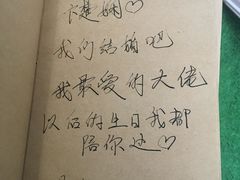 卞楚娴♡
我们结婚吧
我最爱的大佬
以后的生日我都
陪你过♡